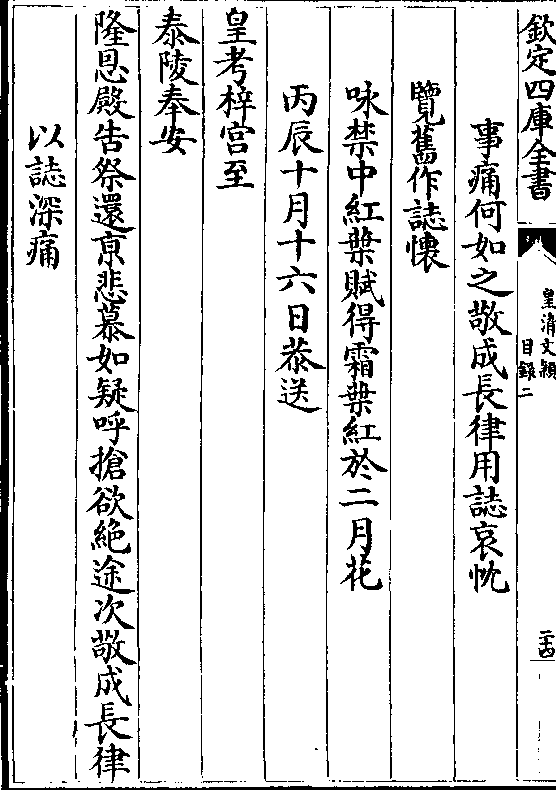 欽定四庫全書
皇清文穎
目錄二
二十四
事痛何如之敬成長律用誌哀忱
覽舊作誌懷
咏禁中紅葉賦得霜葉紅於二月花
丙辰十月十六日恭送
皇考梓宮至
泰陵奉安
隆恩殿告祭還京悲慕如疑呼搶欲絶途次敬成長律
以誌深痛